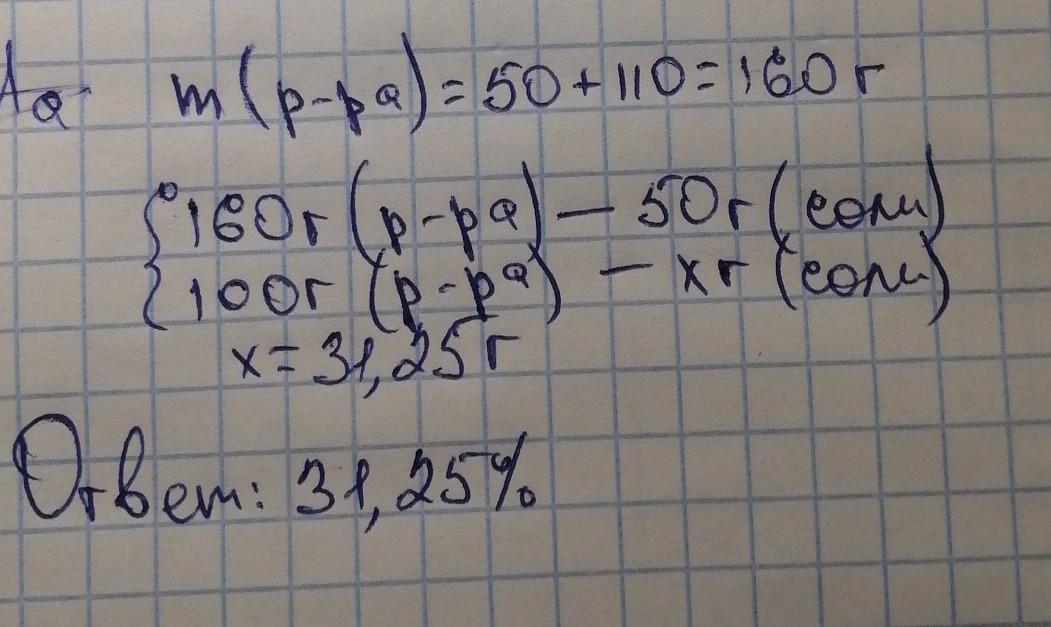 m(р-ра)=50+110=160г
160г (р-ра) — 50г (соли)
100г (р-ра) — хг (соли)
х=31,25г
Ответ: 31,25%